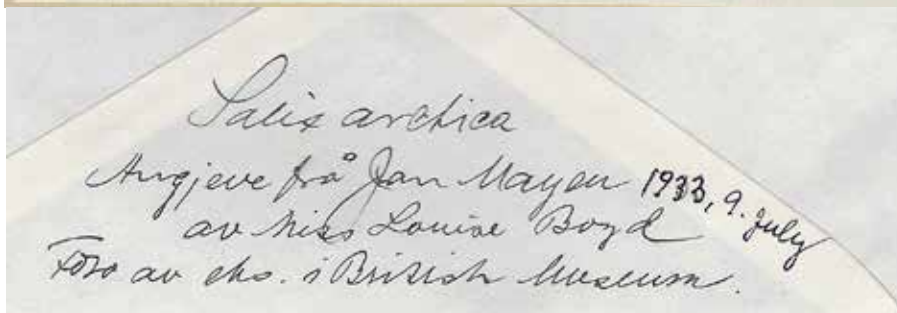 Salix arctica
Angjeve frå Jan Mayen 1933, 9. july
av Miss Louise Boyd
Foto av eks. i British Museum.